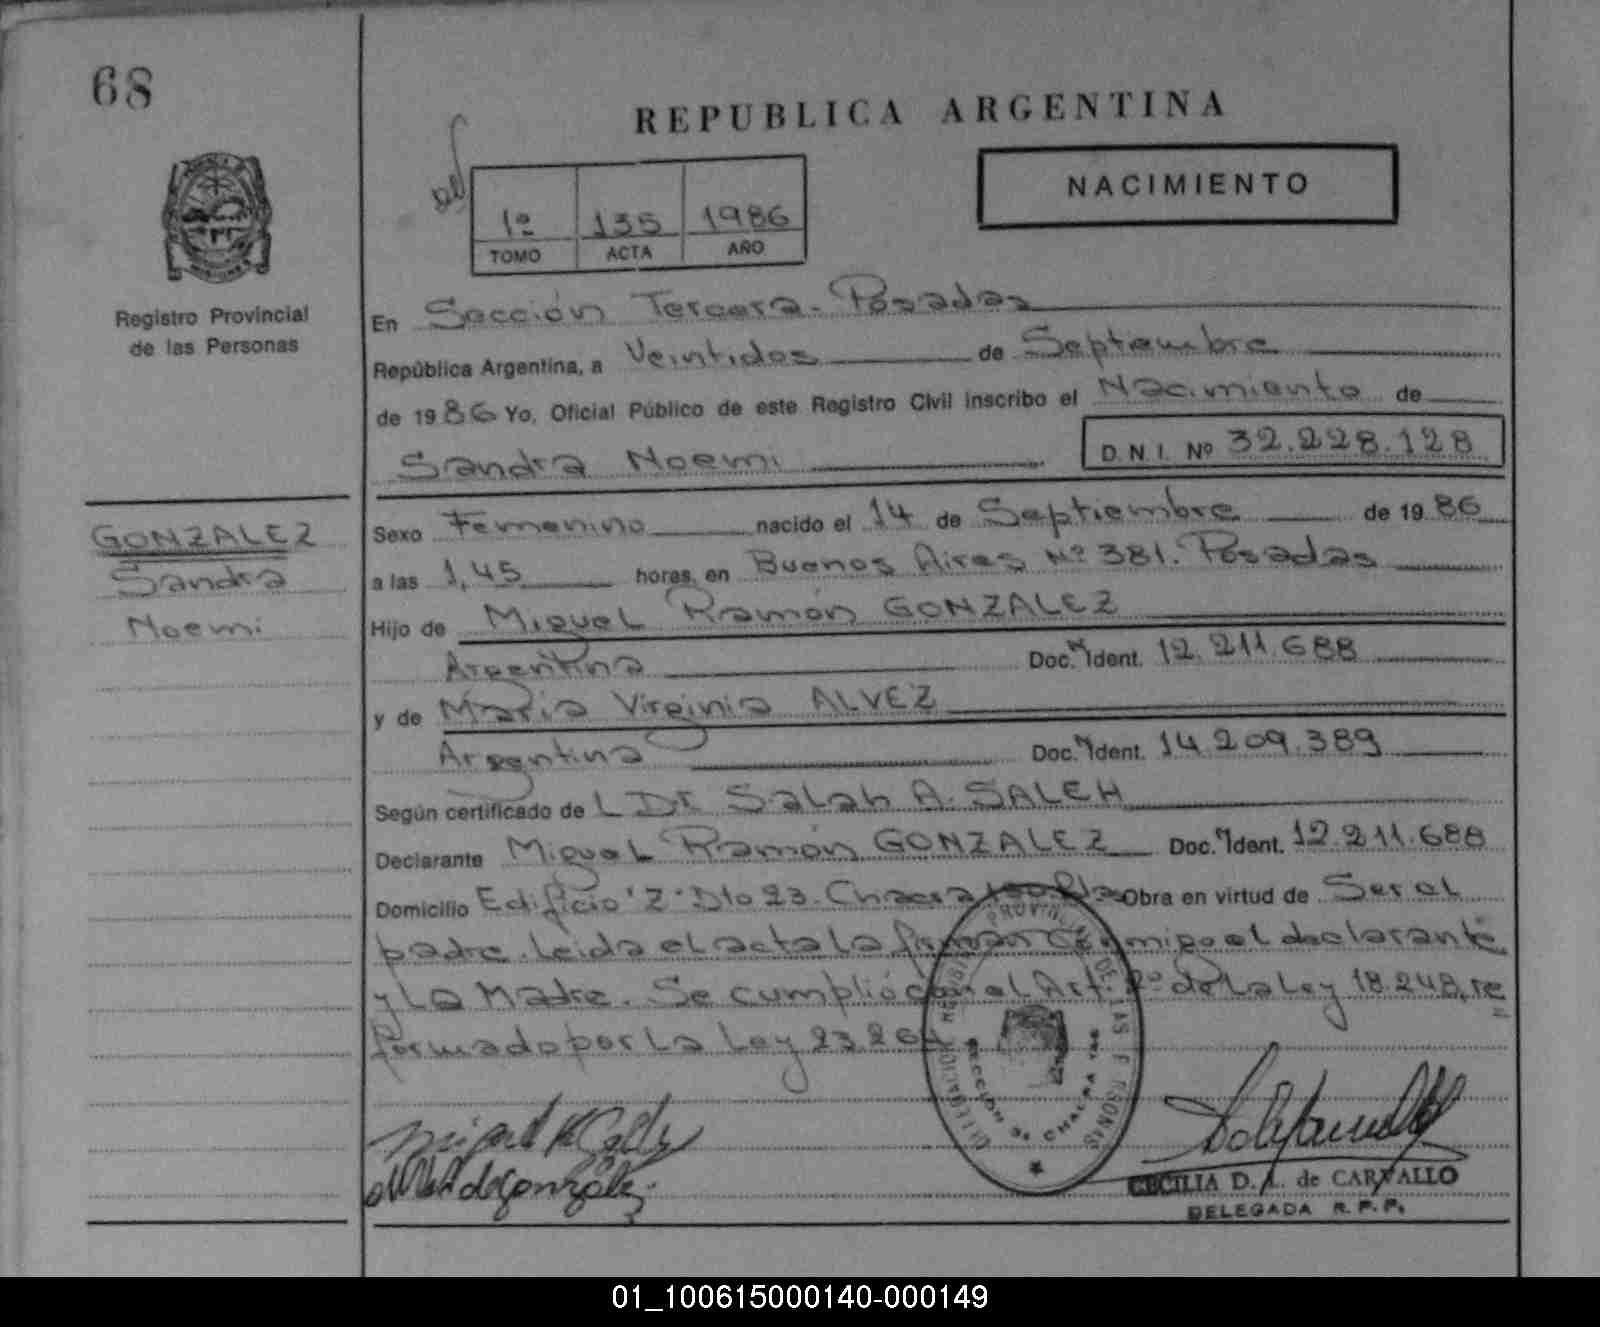 68
REPUBLICA ARGENTINA
NACIMIENTO
1º 135 1986
TOMO ACTA AÑO
Registro Provincial
de las Personas
En Sección Tercera - Posadas
República Argentina, a Veintidos de Septiembre
de 1986 Yo, Oficial Público de este Registro Civil inscribo el Nacimiento de
Sandra Noemi D. N. I. Nº 32.228.128
GONZALEZ
Sandra
Noemi
Sexo Femenino nacido el 14 de Septiembre de 1986
a las 1,45 horas, en Buenos Aires Nº 381. Posadas
Hijo de Miguel Ramón GONZALEZ
Argentina Doc. Ident. 12.211.688
y de Maria Virginia ALVEZ
Argentina Doc. Ident. 14.209.389
Según certificado de L Dr Salah A. SALEH
Declarante Miguel Ramón GONZALEZ Doc. Ident. 12.211.688
Domicilio Edificio "Z" Dto 23. Chacra Obra en virtud de Ser el
padre. Leida el acta la firman conmigo el declarante
y La Madre. Se cumplió con el Art. 2º de la Ley 18.248, re
formado por La Ley 23.264
CECILIA D. A. de CARVALLO
DELEGADA R. P. P.
01_100615000140-000149